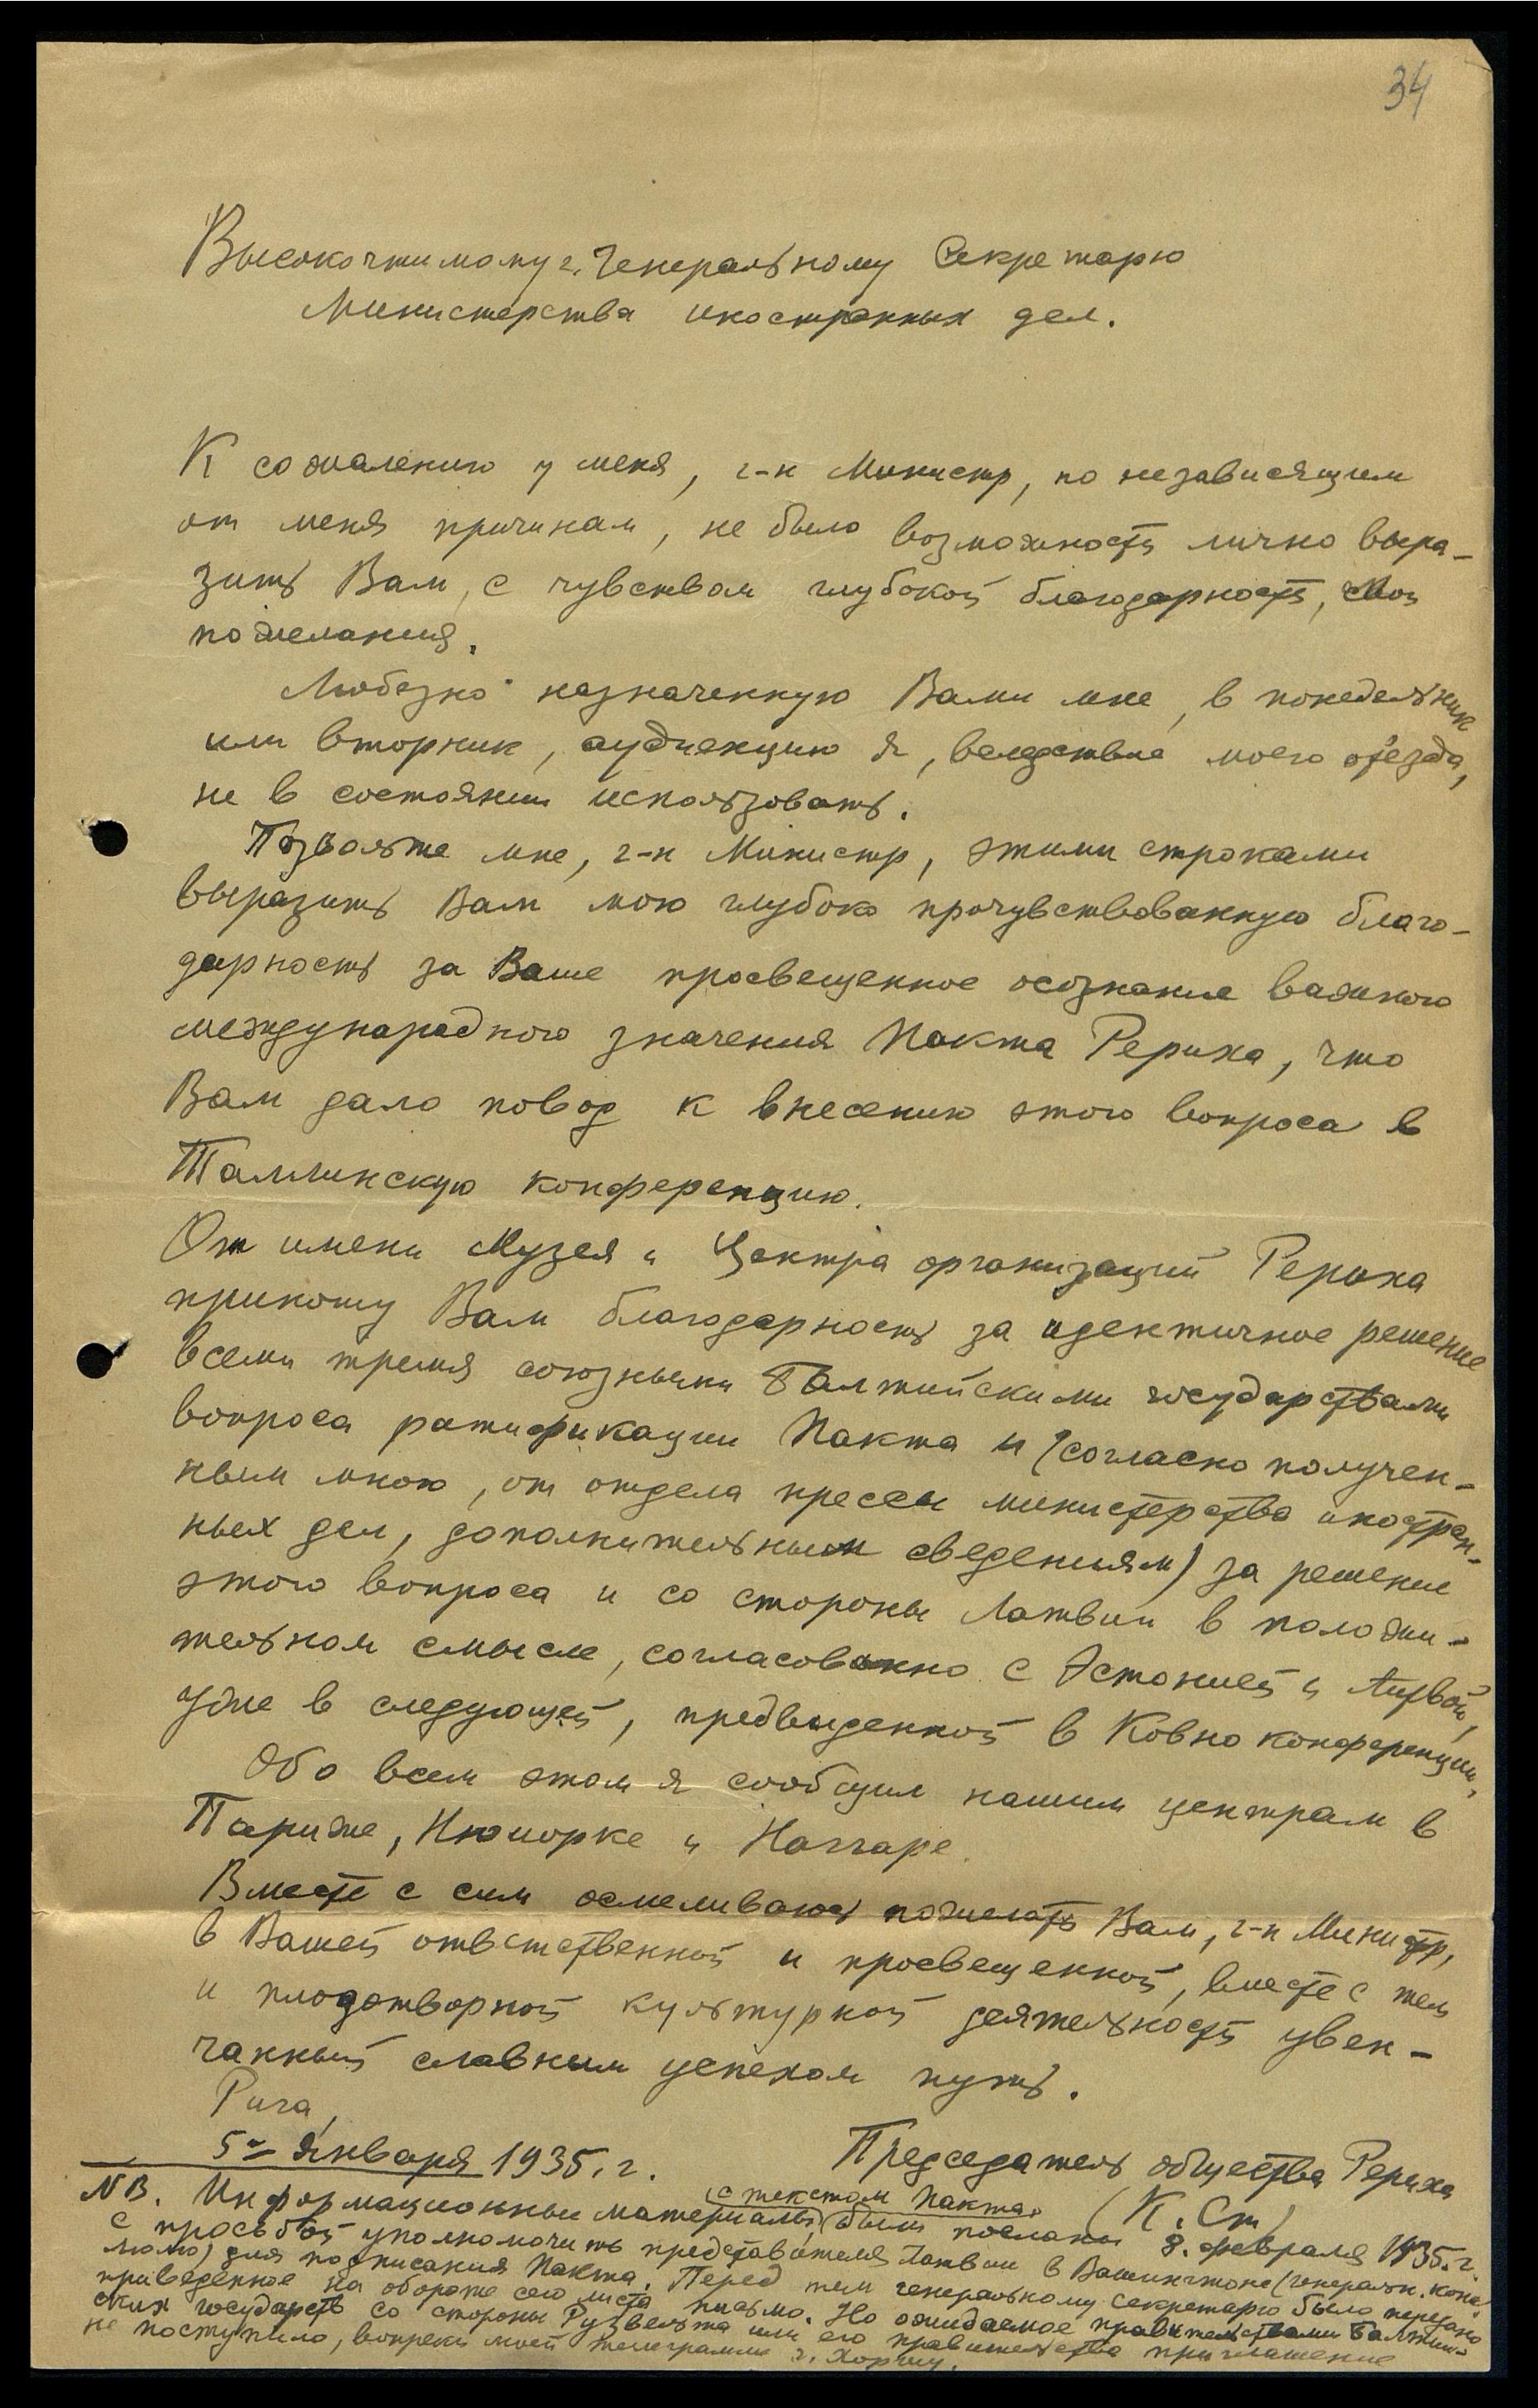 34
Высокочтимому г. Генеральному Секретарю
Министерства иностранных дел.
К сожалению у меня, г-н Министр, по независящим
от меня причинам, не было возможности лично выра-
зить Вам, с чувством глубокой благодарности, мои
пожелания.
Любезно назначенную Вами мне, в понедельник
или вторник, аудиенцию я, вследствие моего отъезда,
не в состоянии использовать.
Позвольте мне, г-н Министр, этими строками
выразить Вам мою глубоко прочувствованную благо-
дарность за Ваше просвещенное осознание важного
международного значения Пакта Рериха, что
Вам дало повод к внесению этого вопроса в
Таллинскую конференцию.
От имени Музея и Центра организаций Рериха
приношу Вам благодарность за идентичное решение
всеми тремя союзными Балтийскими государствами
вопроса ратификации Пакта и (согласно получен-
ным мною, от отдела прессы министерства иностран-
ных дел, дополнительным сведениям) за решение
этого вопроса и со стороны Латвии в положи-
тельном смысле, согласованно с Эстонией и Литвой,
уже в следующей, предвиденной в Ковно конференции,
Обо всем этом я сообщил нашим центрам в
Париже, Нюиорке и Наггаре.
Вместе с сим осмеливаюсь пожелать Вам, г-н Министр,
в Вашей ответственной и просвещенной, вместе с тем
и плодотворной культурной деятельности увен-
чанный славным успехом путь.
Рига,
5го января 1935. г.
Председатель общества Рериха
(К. Ст)
NB. Информационные материалы (с текстом Пакта) были посланы 8. февраля 1935. г.
с просьбой уполномочить представителя Латвии в Вашингтоне (генеральн. конс.
) для подписания Пакта. Перед тем генеральному секретарю было передано
приведенное на обороте сего листа письмо. Но ожидаемое правительствами Балтий-
ских государств со стороны Рузвельта или его правительства приглашение
не поступило, вопреки моей телеграмме г. Хоршу.